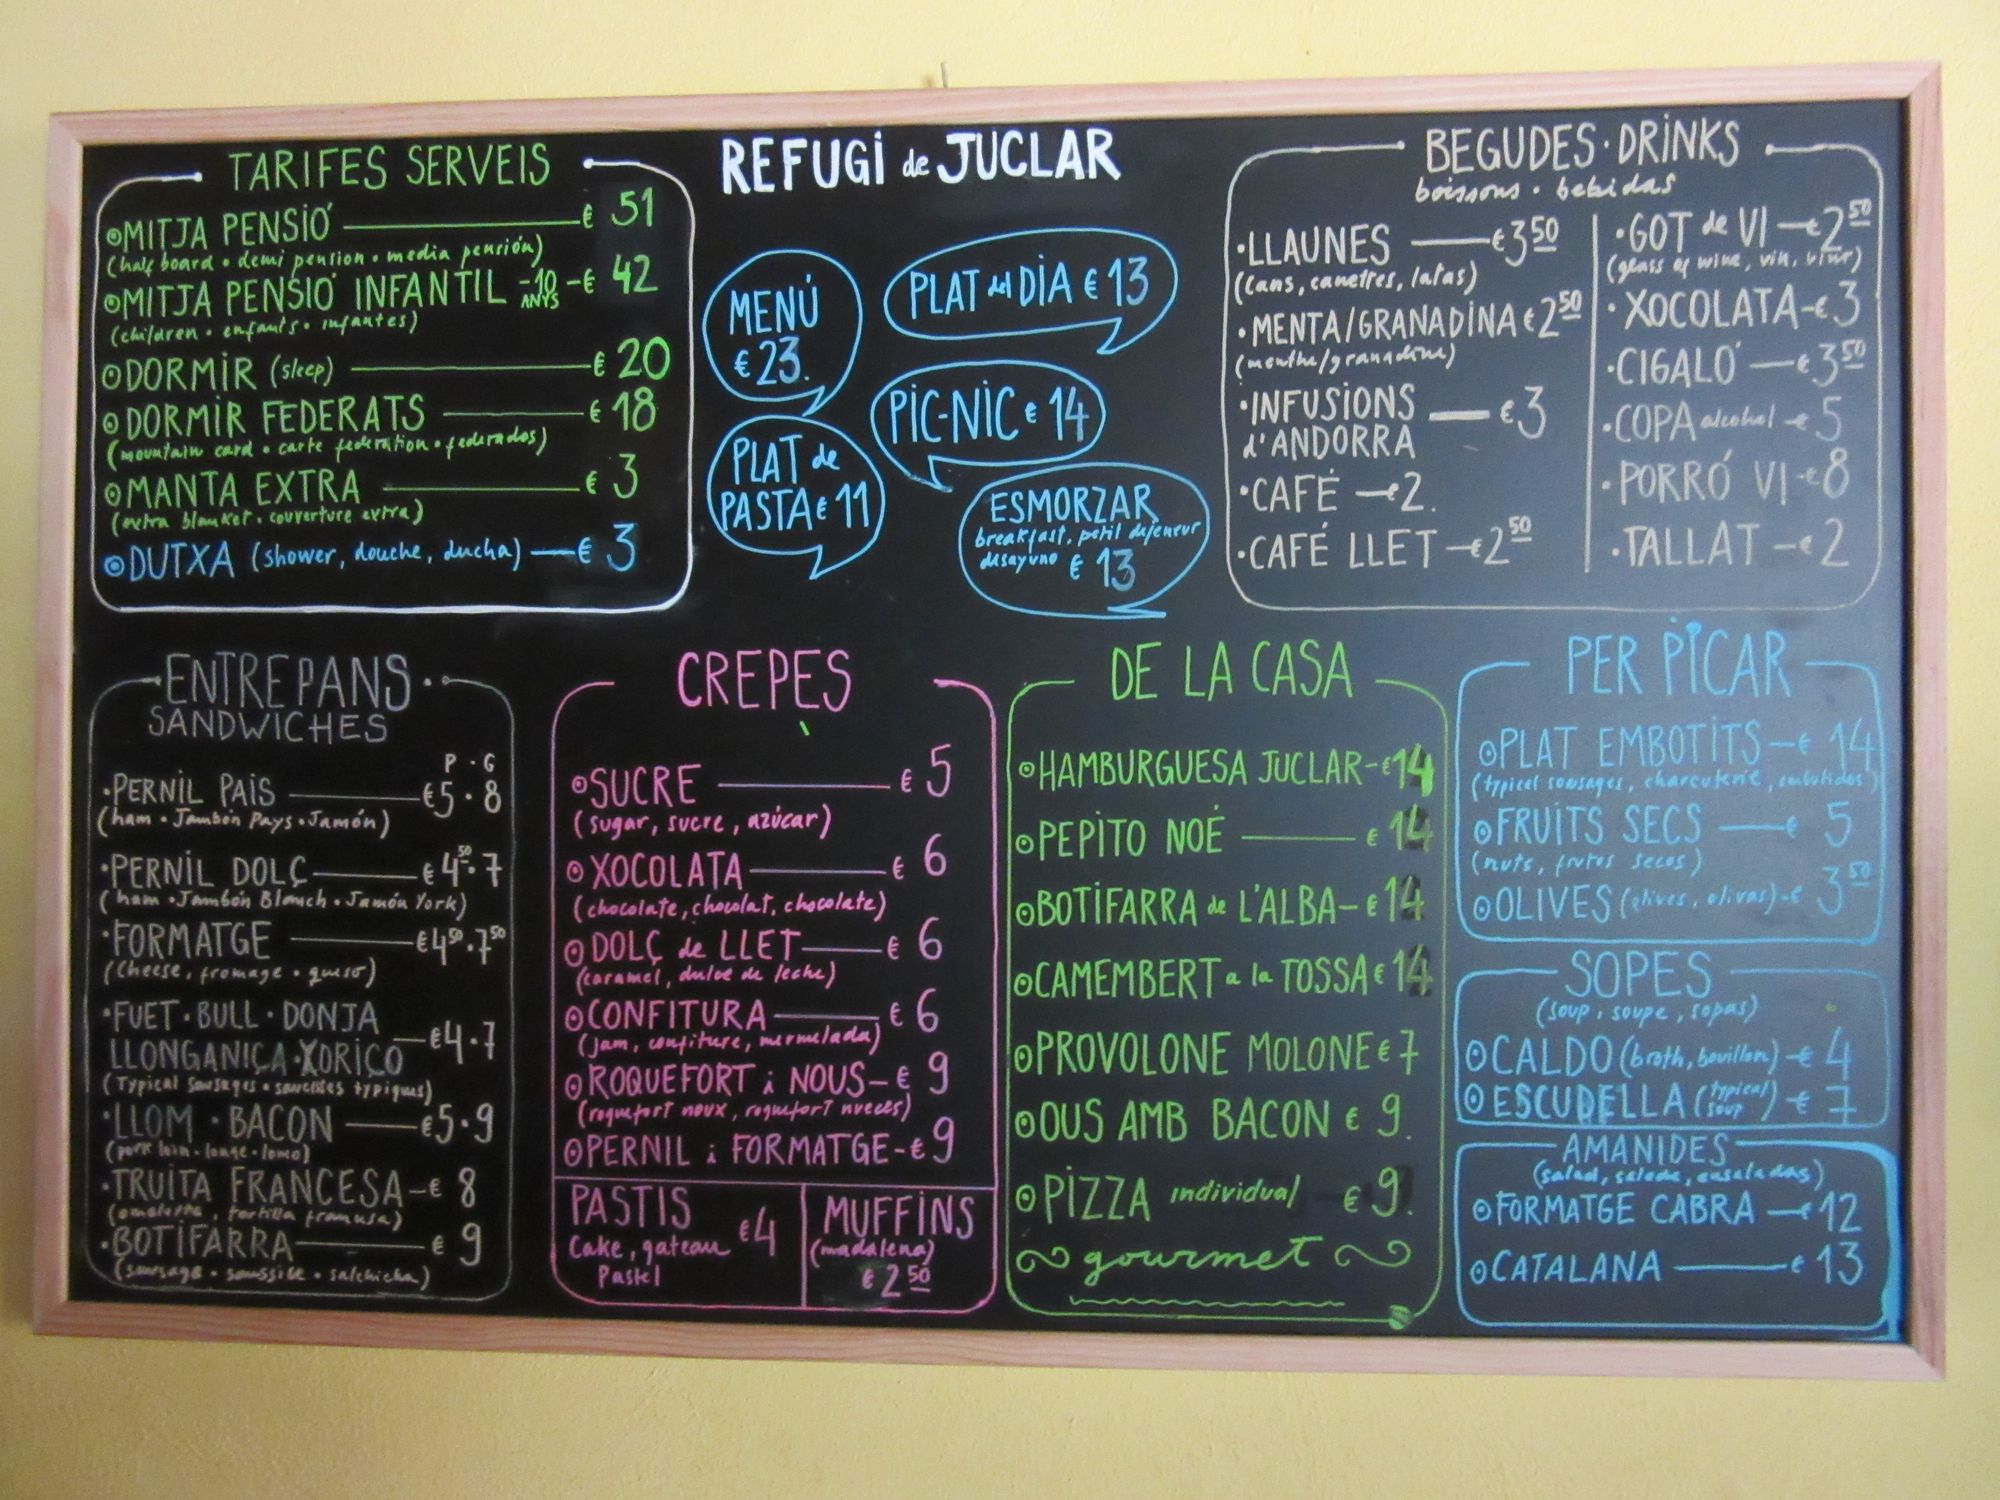 REFUGI de JUCLAR
TARIFES SERVEIS
MITJA PENSIÓ € 51
(half board • demi pension • media pensión)
MITJA PENSIÓ INFANTIL -10 ANYS € 42
(children • enfants • infantes)
DORMIR (sleep) € 20
DORMIR FEDERATS € 18
(mountain card • carte federation • federados)
MANTA EXTRA € 3
(extra blanket • couverture extra)
DUTXA (shower, douche, ducha) € 3
MENÚ
€ 23.
PLAT del DIA € 13
PIC-NIC € 14
PLAT de
PASTA € 11
ESMORZAR
breakfast, petit dejeneur
desayuno € 13
BEGUDES · DRINKS
boissons • bebidas
·LLAUNES €3 50
(cans, canettes, latas)
·MENTA/GRANADINA €2 50
(menthe/granadine)
·INFUSIONS € 3
d'ANDORRA
·CAFÉ € 2.
·CAFÉ LLET €2 50
·GOT de VI €2 50
(glass of wine, vin, vino)
·XOCOLATA €3
·CIGALÓ €3 50
·COPA alcohol € 5
·PORRÓ VI €8
·TALLAT € 2
ENTREPANS
SANDWICHES
P · G
·PERNIL PAIS €5 · 8
(ham • Jambón Pays • Jamón)
·PERNIL DOLÇ €4 50 · 7
(ham • Jambón Blanch • Jamón York)
·FORMATGE €4 50 · 7 50
(Cheese, fromage • queso)
·FUET · BULL · DONJA
LLONGANIÇA · XORIÇO €4 · 7
(Typical Sausages • saucisses typiques)
·LLOM · BACON €5 · 9
(pork loin • longe • lomo)
·TRUITA FRANCESA € 8
(omelette, tortilla francesa)
·BOTIFARRA € 9
(sausage • saussice • salchicha)
CREPES
SUCRE € 5
(sugar, sucre, azúcar)
XOCOLATA € 6
(chocolate, chocolat, chocolate)
DOLÇ de LLET € 6
(caramel, dulce de leche)
CONFITURA € 6
(jam, confiture, mermelada)
ROQUEFORT i NOUS € 9
(roquefort noux, roquefort nueces)
PERNIL i FORMATGE €9
PASTIS €4
Cake, gateau
Pastel
MUFFINS
(madalena)
€ 2 50
DE LA CASA
HAMBURGUESA JUCLAR €14
PEPITO NOÉ € 14
BOTIFARRA de L'ALBA € 14
CAMEMBERT a la TOSSA € 14
PROVOLONE MOLONE € 7
OUS AMB BACON € 9.
PIZZA individual € 9.
gourmet
PER PICAR
PLAT EMBOTITS € 14
(typical sausages, charcuterie, embutidos)
FRUITS SECS € 5
(nuts, frutos secos)
OLIVES (olives, olivas) € 3 50
SOPES
(soup, soupe, sopas)
CALDO (broth, bouillon) € 4
ESCUDELLA (typical soup) € 7
AMANIDES
(salad, salade, ensaladas)
FORMATGE CABRA € 12
CATALANA € 13